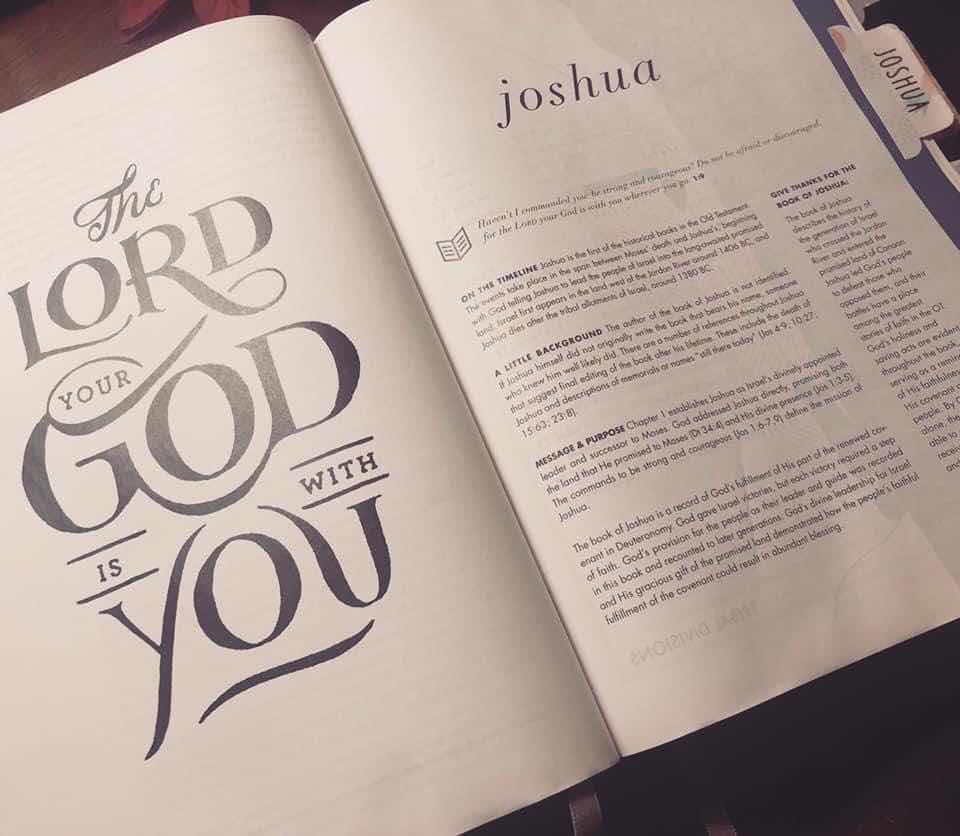 The
LORD
YOUR
GOD
IS
WITH
YOU
joshua
JOSHUA
Haven't I commanded you: be strong and courageous? Do not be afraid or discouraged,
for the Lord your God is with you wherever you go. 1:9
ON THE TIMELINE Joshua is the first of the historical books in the Old Testament.
The events take place in the span between Moses' death and Joshua's, beginning
with God telling Joshua to lead the people of Israel into the long-awaited promised
land. Israel first appears in the land west of the Jordan River around 1406 BC, and
Joshua dies after the tribal allotments of Israel, around 1380 BC.
A LITTLE BACKGROUND The author of the book of Joshua is not identified.
If Joshua himself did not originally write the book that bears his name, someone
who knew him well likely did. There are a number of references throughout Joshua
that suggest final editing of the book after his lifetime. These include the death of
Joshua and descriptions of memorials or names "still there today" (Jos 4:9; 10:27;
15:63; 23:8).
MESSAGE & PURPOSE Chapter 1 establishes Joshua as Israel's divinely appointed
leader and successor to Moses. God addressed Joshua directly, promising both
the land that He promised to Moses (Dt 34:4) and His divine presence (Jos 1:3-5).
The commands to be strong and courageous (Jos 1:6-7,9) define the mission of
Joshua.
The book of Joshua is a record of God's fulfillment of His part of the renewed cov-
enant in Deuteronomy. God gave Israel victories, but each victory required a step
of faith. God's provision for the people as their leader and guide was recorded
in this book and recounted to later generations. God's divine leadership for Israel
and His gracious gift of the promised land demonstrated how the people's faithful
fulfillment of the covenant could result in abundant blessing.
GIVE THANKS FOR THE
BOOK OF JOSHUA:
The book of Joshua
describes the history of
the generation of Israel
who crossed the Jordan
River and entered the
promised land of Canaan.
Joshua led God's people
to defeat those who
opposed them, and their
battles have a place
among the greatest
stories of faith in the OT.
God's holiness and
saving acts are evident
throughout the book,
serving as a remin
of His faithfulness
His covenant
people. By G
alone, the
able to
rece
and